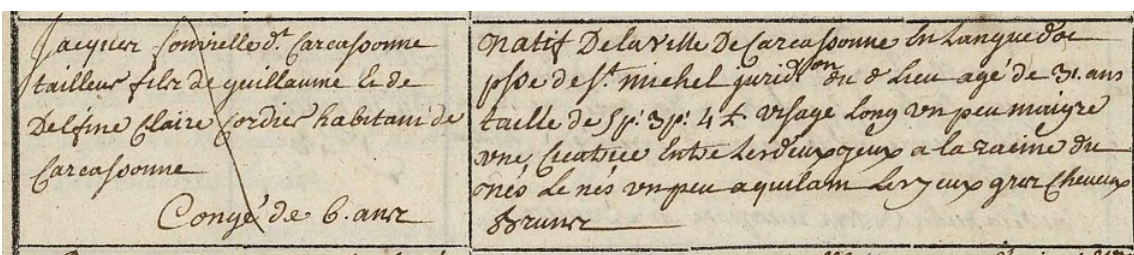 Jacques Sonrielle d.t Carcassonne
tailleur fils de guillaume et de
Delfine Claire Cordier habitant de
Carcassonne
Congé de 6. ans
natif De la Ville De Carcassonne En Languedoc
psse de St. michel jurid.on du d. Lieu agé de 31. ans
taille de 5 pi. 3 po. 4 l. visage Long un peu maigre
une Cicatrice Entre Les deux yeux a la racine du
nés Le nés un peu aquilain Les yeux gris Cheveux
Bruns